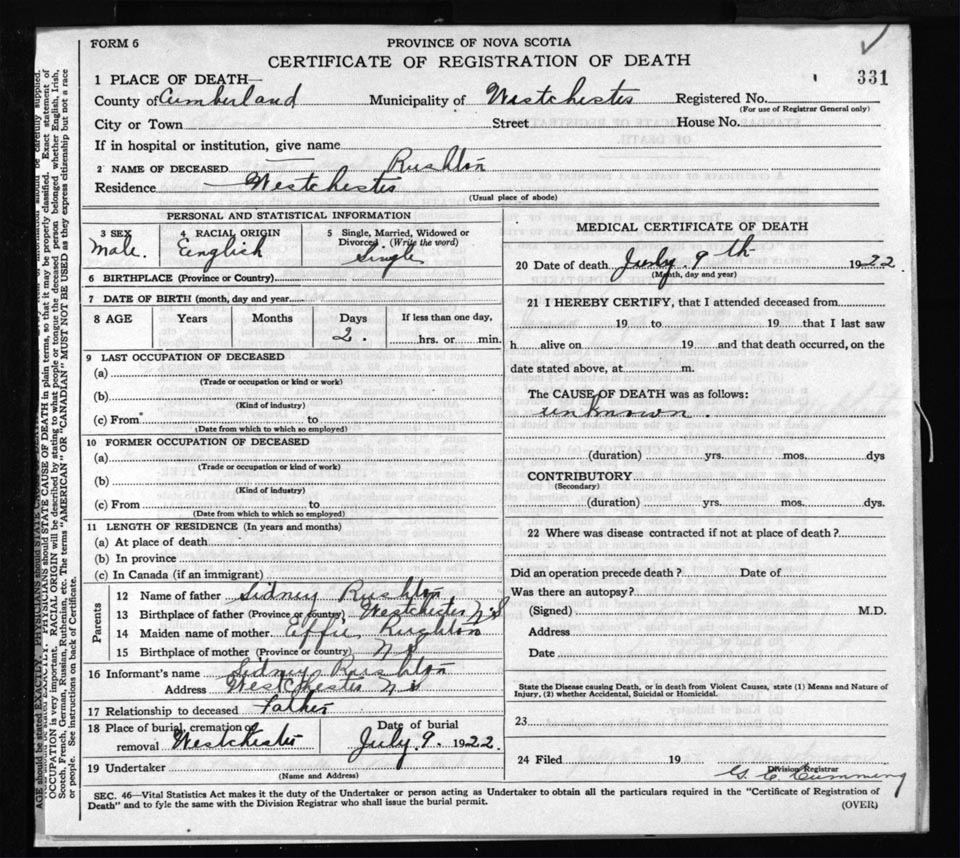 FORM 6
PROVINCE OF NOVA SCOTIA
CERTIFICATE OF REGISTRATION OF DEATH
331
1 PLACE OF DEATH—
County of Cumberland Municipality of Westchester Registered No.
(For use of Registrar General only)
City or Town Street House No.
If in hospital or institution, give name
2 NAME OF DECEASED — Rushton
Residence Westchester
(Usual place of abode)
PERSONAL AND STATISTICAL INFORMATION
3 SEX 4 RACIAL ORIGIN 5 Single, Married, Widowed or Divorced. (Write the word)
Male. English Single
6 BIRTHPLACE (Province or Country)
7 DATE OF BIRTH (month, day and year)
8 AGE Years Months Days If less than one day,
2. hrs. or min.
9 LAST OCCUPATION OF DECEASED
(a)
(Trade or occupation or kind or work)
(b)
(Kind of industry)
(c) From to
(Date from which to which so employed)
10 FORMER OCCUPATION OF DECEASED
(a)
(Trade or occupation or kind of work)
(b)
(Kind of industry)
(c) From to
(Date from which to which so employed)
11 LENGTH OF RESIDENCE (In years and months)
(a) At place of death
(b) In province
(c) In Canada (if an immigrant)
Parents
12 Name of father Sidney Rushton
13 Birthplace of father (Province or country) Westchester N S
14 Maiden name of mother Effie Rughton
15 Birthplace of mother (Province or country) N S
16 Informant's name Sidney Rushton
Address Westchester N S
17 Relationship to deceased Father
18 Place of burial, cremation or removal Westchester
Date of burial July 9. 1922.
19 Undertaker
(Name and Address)
MEDICAL CERTIFICATE OF DEATH
20 Date of death July 9th 1922.
(Month, day and year)
21 I HEREBY CERTIFY, that I attended deceased from
19 to 19 that I last saw
h alive on 19 and that death occurred, on the
date stated above, at m.
The CAUSE OF DEATH was as follows:
unknown.
(duration) yrs. mos. dys
CONTRIBUTORY
(Secondary)
(duration) yrs. mos. dys.
22 Where was disease contracted if not at place of death?
Did an operation precede death? Date of
Was there an autopsy?
(Signed) M.D.
Address
Date
State the Disease causing Death, or in death from Violent Causes, state (1) Means and Nature of
Injury. (2) whether Accidental, Suicidal or Homicidal.
23
24 Filed 19
Division Registrar
G. C. Cumming
SEC. 46—Vital Statistics Act makes it the duty of the Undertaker or person acting as Undertaker to obtain all the particulars required in the "Certificate of Registration of
Death" and to fyle the same with the Division Registrar who shall issue the burial permit.
(OVER)
AGE should be stated EXACTLY. PHYSICIANS should STATE CAUSE OF DEATH in plain terms, so that it may be properly classified. Exact statement of
OCCUPATION is very important. RACIAL ORIGIN will be described by stating to what people or tongue the deceased person belonged whether English, Irish,
Scotch, French, German, Russian, Ruthenian, etc. The terms "AMERICAN" OR "CANADIAN" MUST NOT BE USED as they express citizenship but not a race
or people. See instructions on back of Certificate.